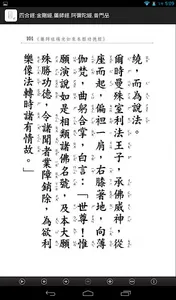 四合經:金剛經,藥師經,阿彌陀經,普門品
《藥師琉璃光如來本願功德經》
繞,而為說法。
爾時曼殊室利法王子,承佛威神,從
座而起,偏袒一肩,右膝著地,向薄
伽梵,曲躬合掌,白言:「世尊!惟
願演說如是相類諸佛名號,及本大願
殊勝功德,令諸聞者業障銷除,為欲利
樂像法轉時諸有情故。」